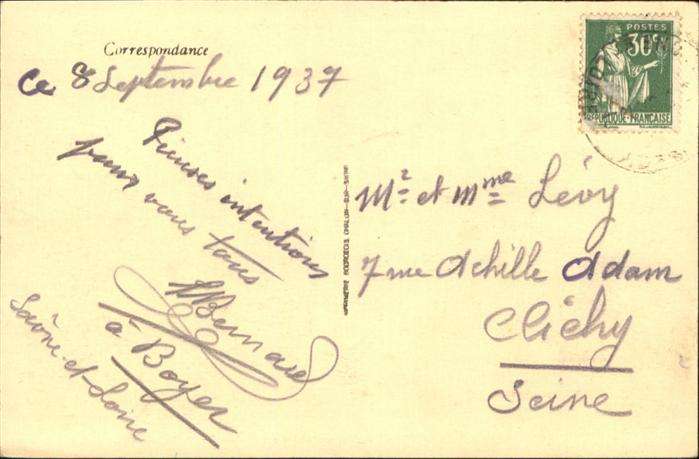 Correspondance
Ce 8 Septembre 1937
Pieuses intentions
pour vous tous
Bernard
à Boyer
Saône-et-Loire
Mr et Mme Lévy
7 rue Achille Adam
Clichy
Seine
POSTES
30c
REPUBLIQUE FRANÇAISE